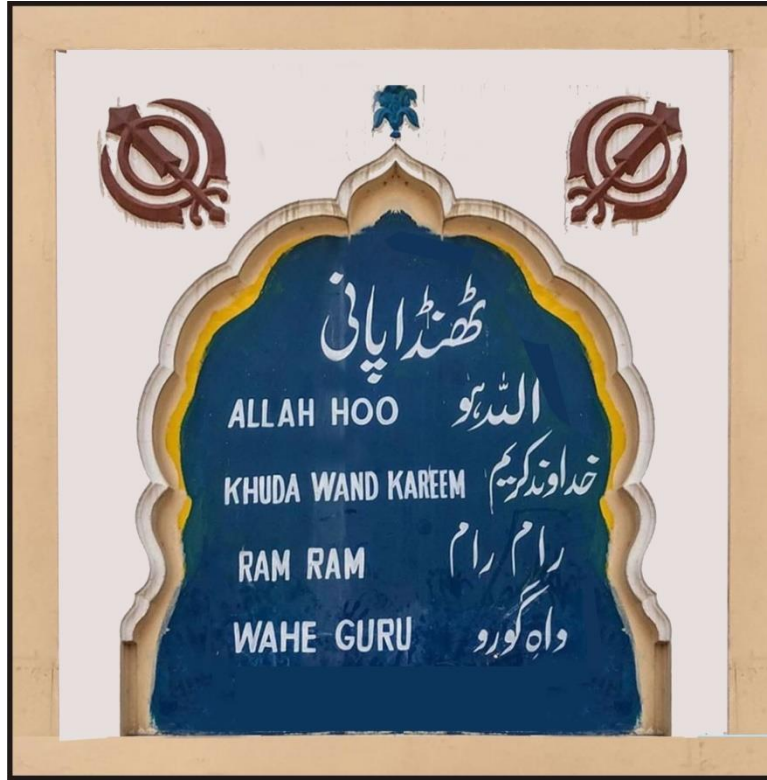 ٹھنڈا پانی
ALLAH HOO اللہ ہو
KHUDA WAND KAREEM خداوند کریم
RAM RAM رام رام
WAHE GURU واہِ گورو